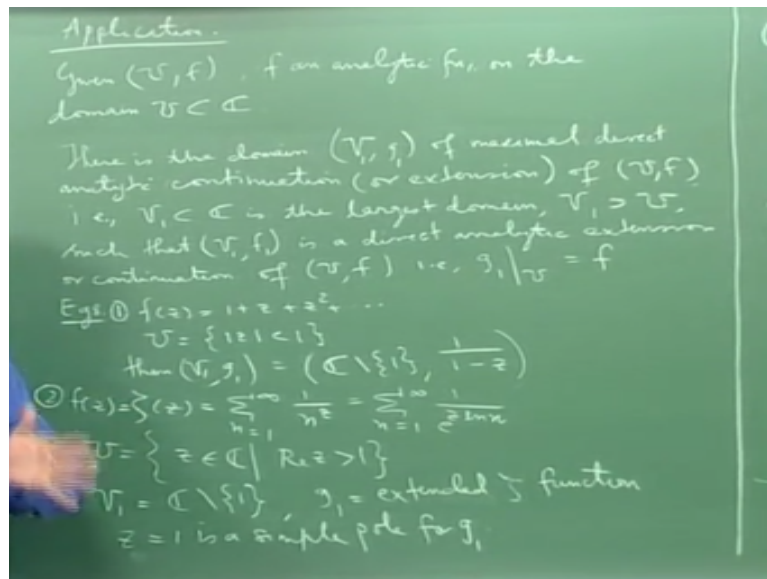 Application.
Given (U, f), f an analytic fn, on the
domain U ⊂ ℂ
There is the domain (V₁, g₁) of maximal direct
analytic continuation (or extension) of (U, f)
i.e., V₁ ⊂ ℂ is the largest domain, V₁ ⊃ U,
such that (V₁, f₁) is a direct analytic extension
or continuation of (U, f) i.e., g₁|_U = f
Egs: ① f(z) = 1 + z + z² + ⋯
U = {|z| < 1}
then (V₁, g₁) = (ℂ \ {1}, 1/(1-z))
② f(z) = ζ(z) = ∑_{n=1}^{+∞} 1/n^z = ∑_{n=1}^{+∞} 1/e^{z ln n}
U = {z ∈ ℂ | Re z > 1}
V₁ = ℂ \ {1}, g₁ = extended ζ function
z = 1 is a simple pole for g₁